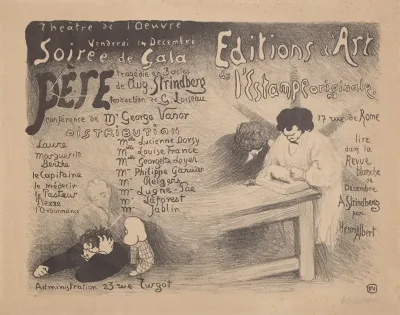 Théâtre de l'Oeuvre
Vendredi 14 Décembre
Soirée de Gala
PÈRE tragédie en 3 actes
de Aug. Strindberg
traduction de G. Loiseau
conférence de Mr George Vanor
DISTRIBUTION
Laure Mlle Lucienne Dorsy
Marguerite Mlle Louise France
Berthe Mlle Georgette Loyer
le Capitaine Mr Philippe Garnier
le médecin Mr Rolgers
le Pasteur Mr Lugné-Poe
Pierre Mr Laforest
l'Ordonnance Mr Jablin
Administration 23 rue Turgot
Editions d'Art
de
l'Estampe originale
17 rue de Rome
lire
dans la
Revue
blanche
de
Décembre
A. Strindberg
par
Henri Albert